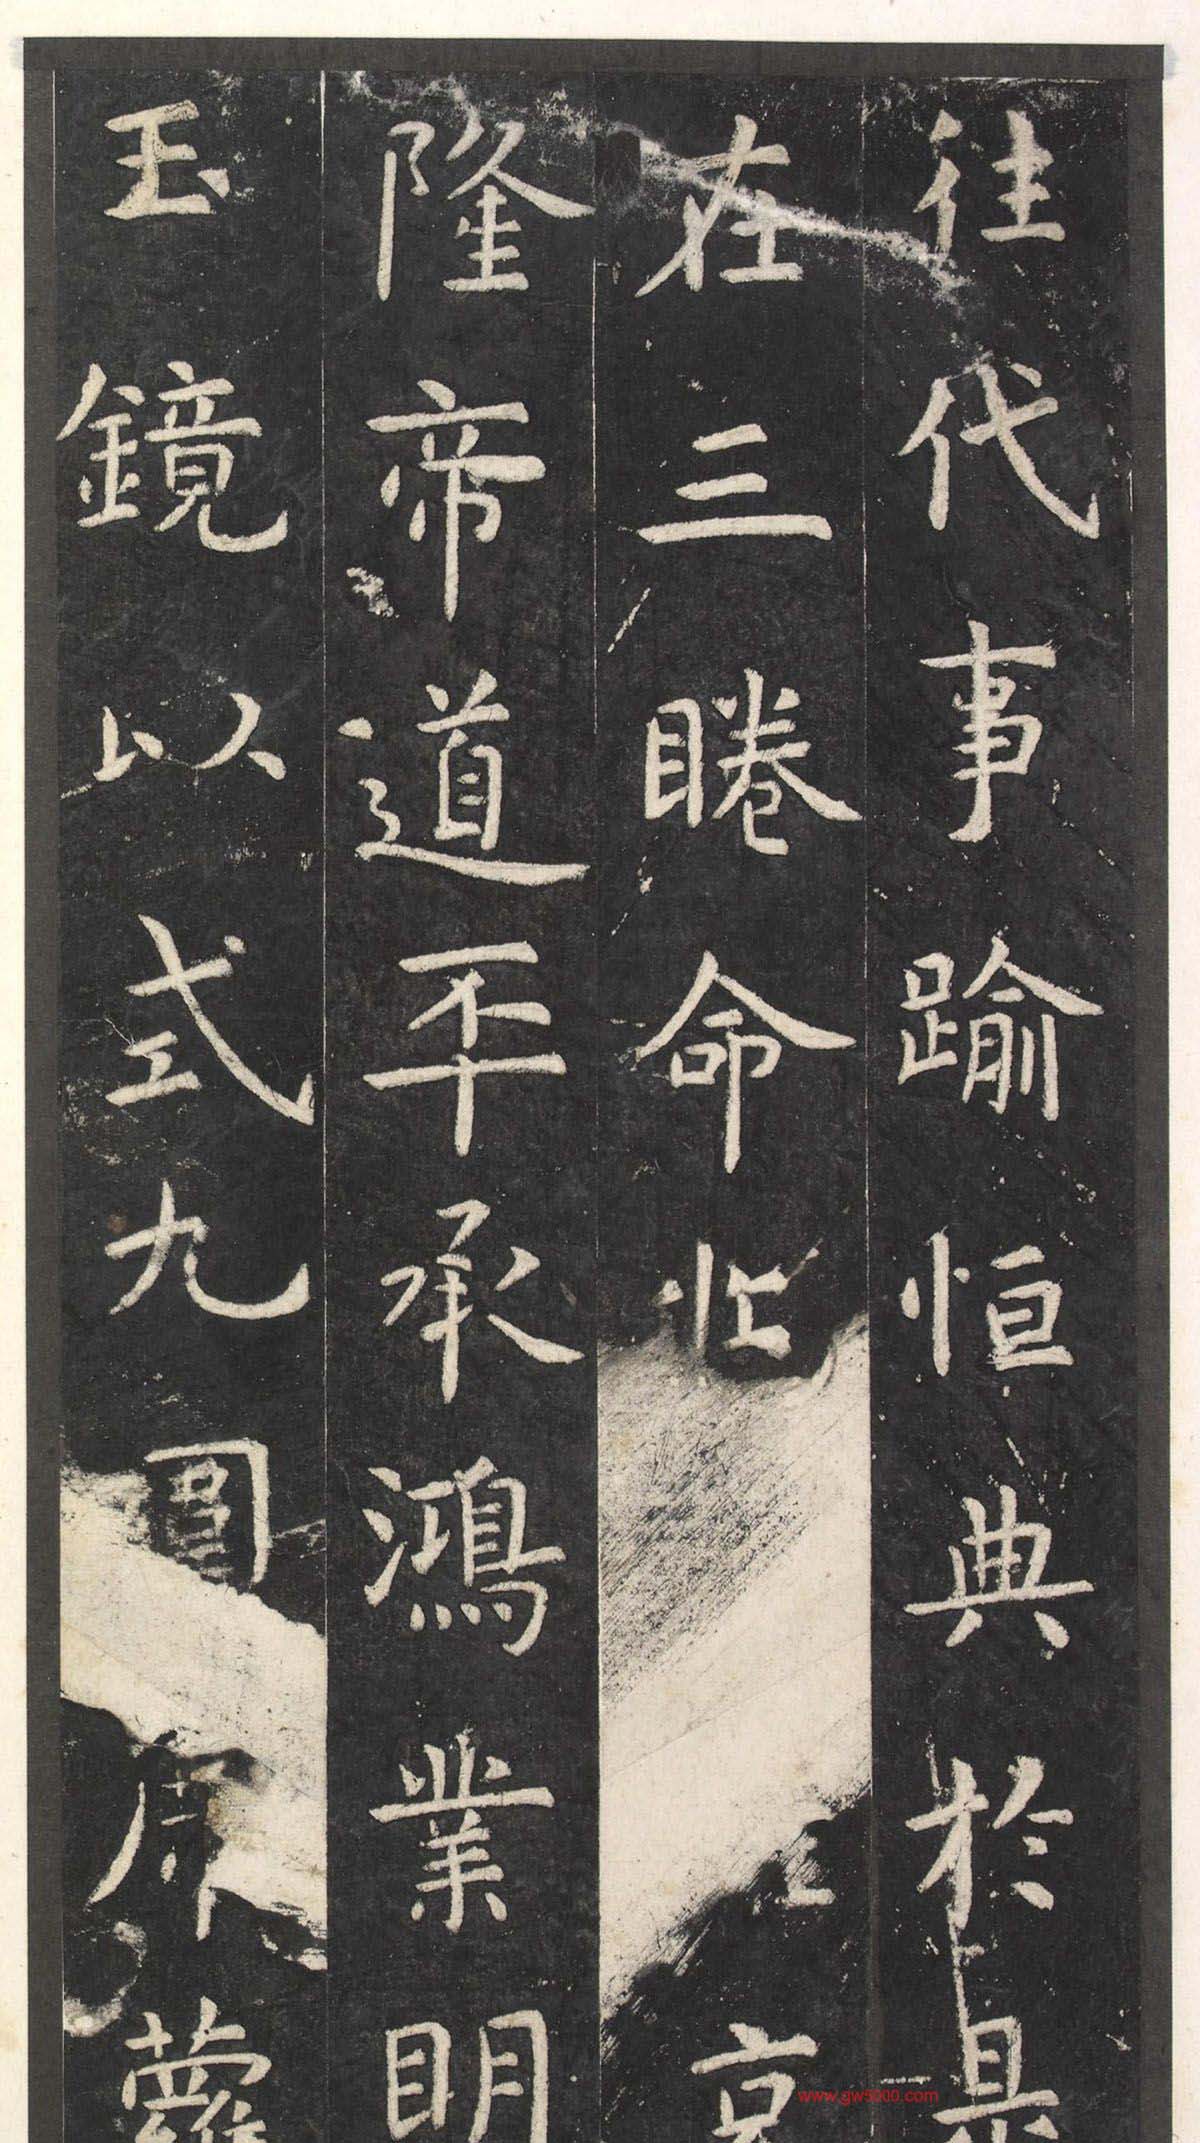 往代事踰恒典於是
在三睠命
隆帝道丕承鴻業明
玉鏡以式九圍
www.gw5000.com